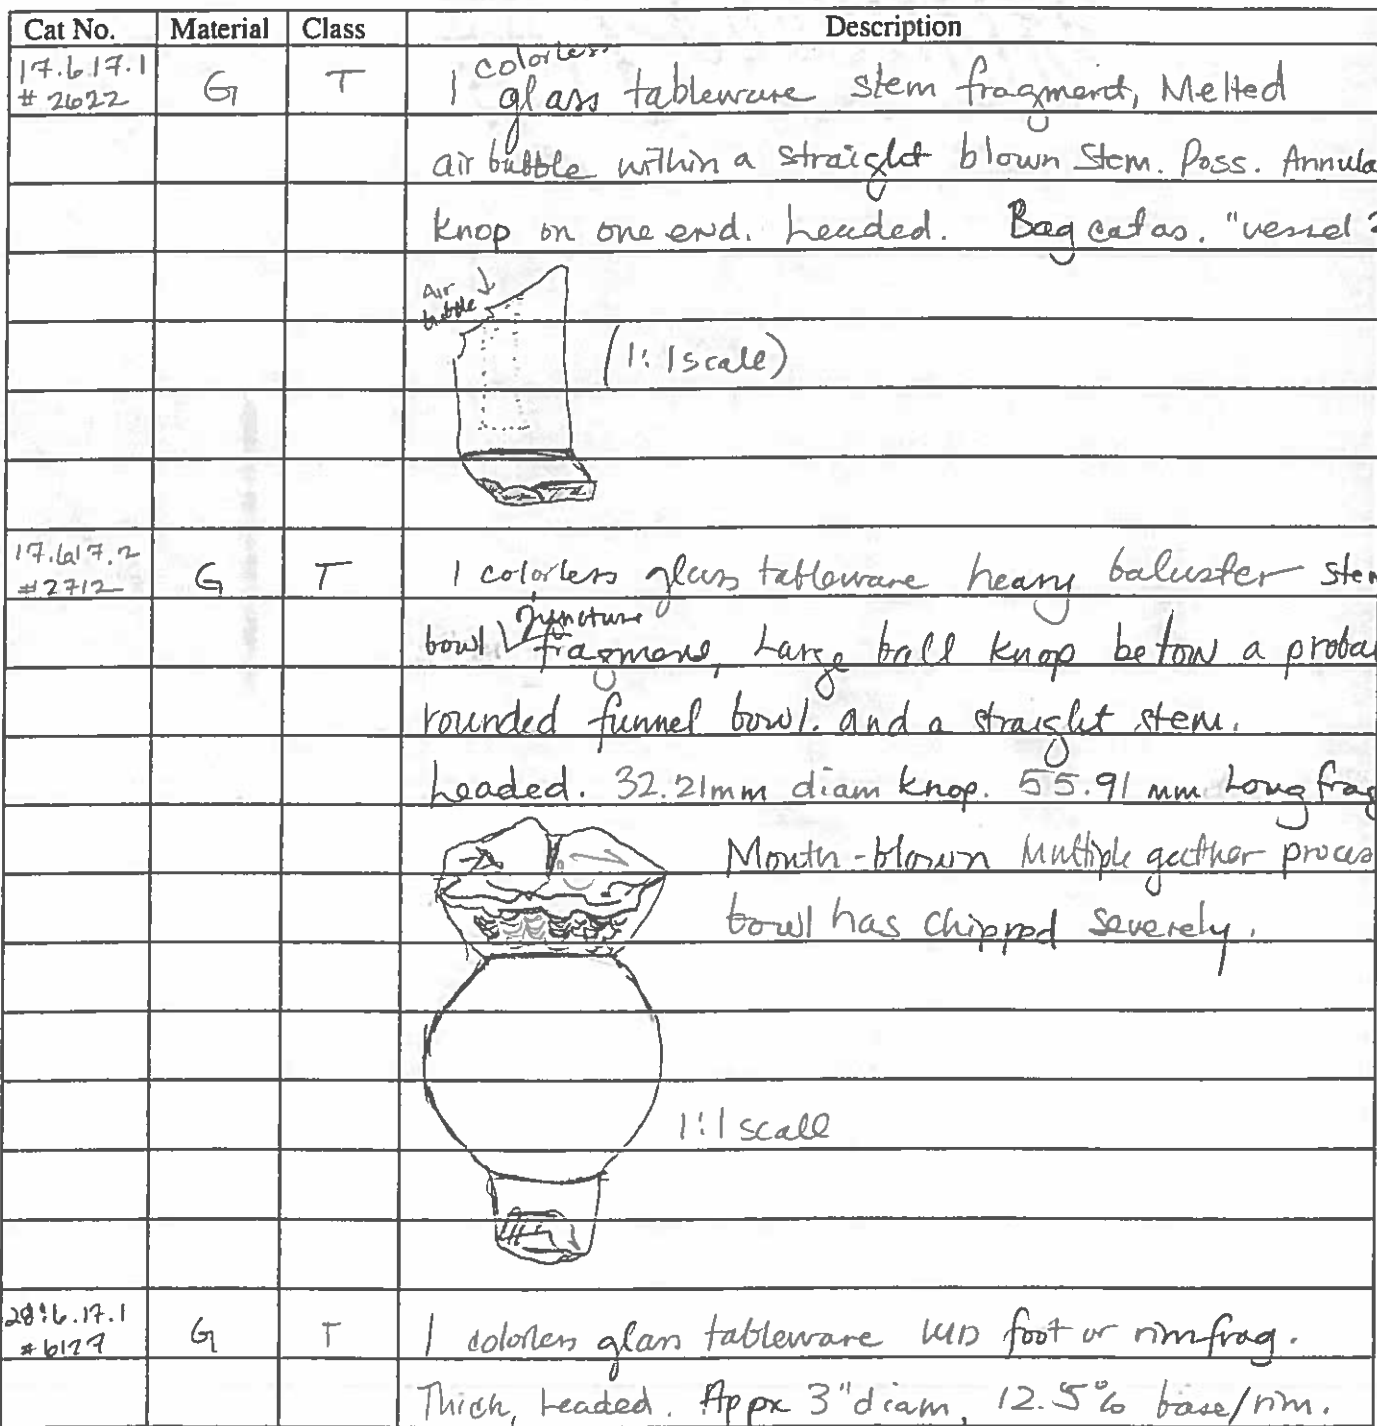 Cat No. Material Class Description
17.6.17.1 G T 1 colorless glass tableware stem fragment, Melted
# 2622
air bubble within a straight blown stem. Poss. Annula
knop on one end. Leaded. Bag cat as. "vessel ?
Air
bubble
(1:1 scale)
17.6.17.2 G T 1 colorless glass tableware heavy baluster stem
#2712
bowl juncture fragment, Large ball knop below a probab
rounded funnel bowl. and a straight stem.
Leaded. 32.21mm diam knop. 55.91 mm Long frag
Mouth-blown Multiple gather proces
bowl has chipped severely.
1:1 scale
G T 1 colorless glass tableware UID foot or rim frag.
#6127
Thick, Leaded. Appx 3" diam, 12.5% base/rim.